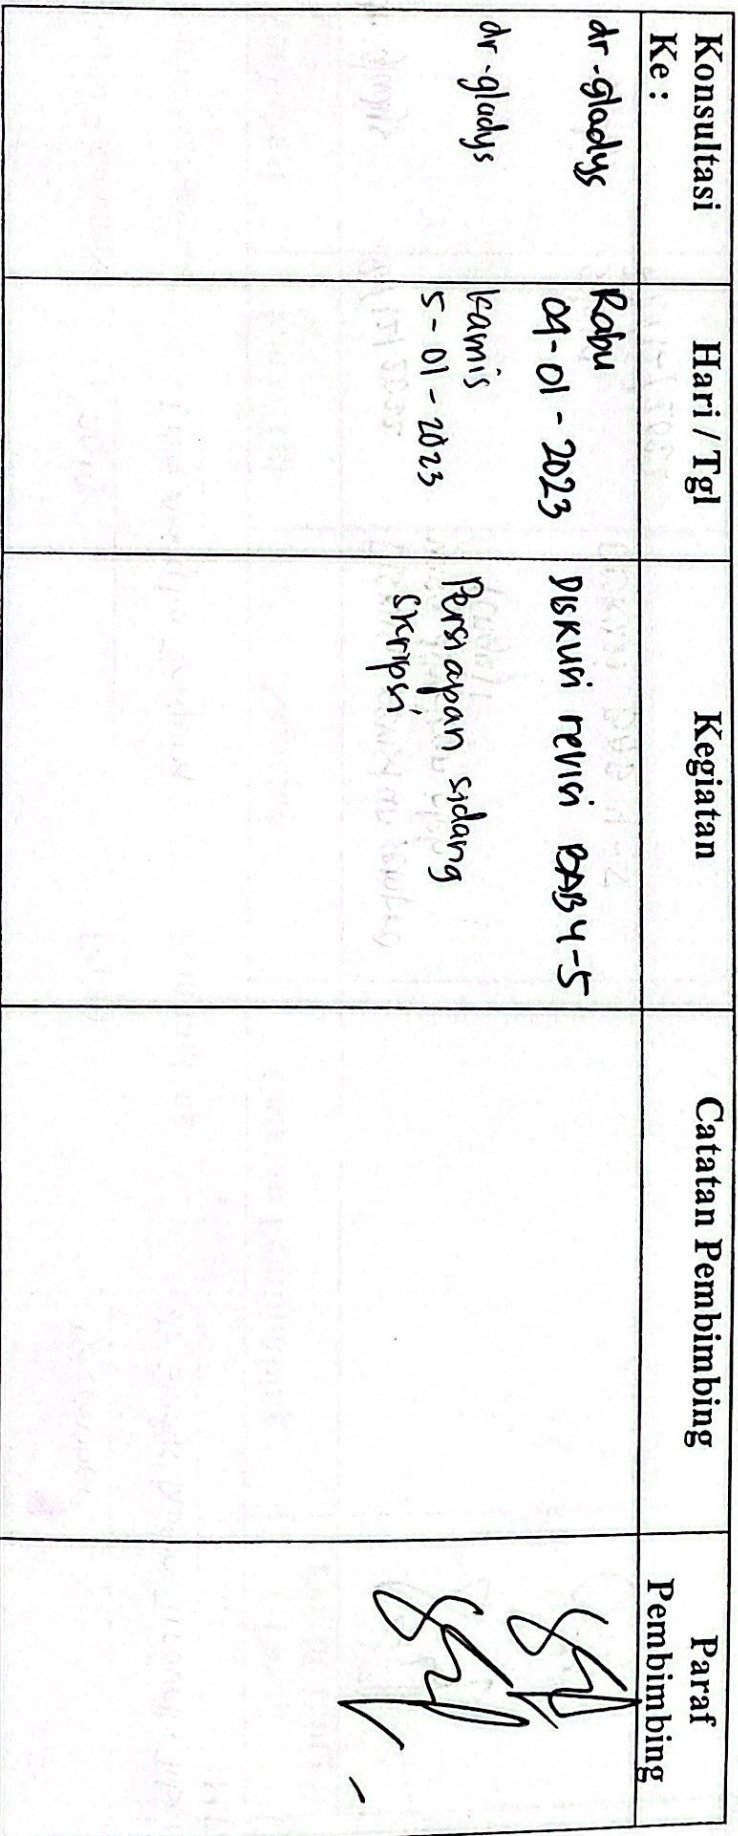 Konsultasi
Ke :
Hari / Tgl
Kegiatan
Catatan Pembimbing
Paraf
Pembimbing
dr. gladys
Rabu
04-01-2023
Diskusi revisi BAB 4-5
dr. gladys
kamis
5-01-2023
Persiapan sidang
Skripsi